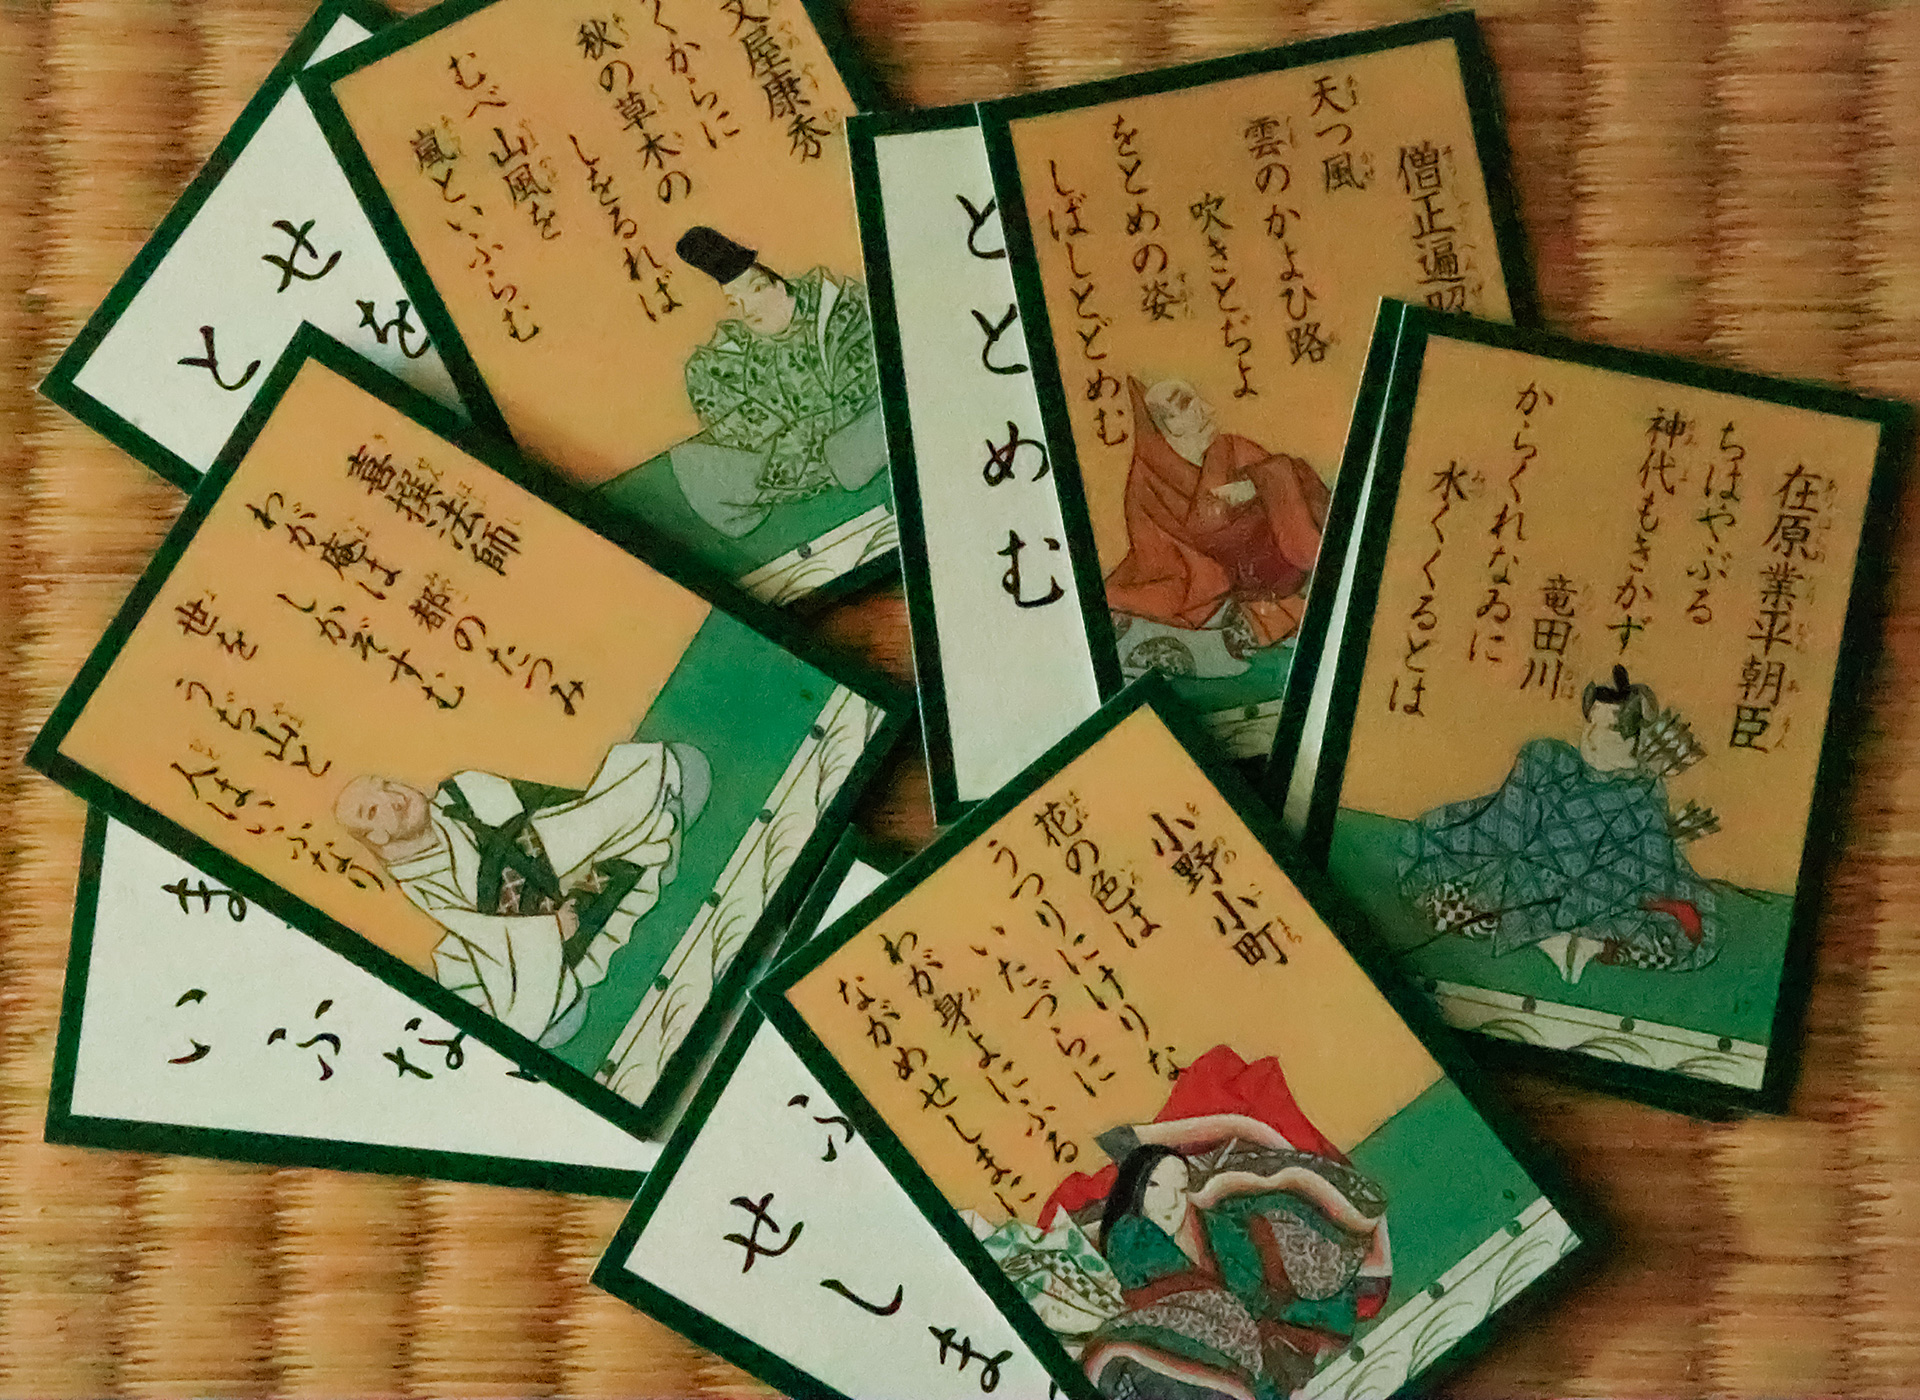 文屋康秀
くからに
秋の草木の
しをるれば
むべ山風を
嵐といふらむ
僧正遍昭
天つ風
雲のかよひ路
吹きとぢよ
をとめの姿
しばしとどめむ
在原業平朝臣
ちはやぶる
神代もきかず
竜田川
からくれなゐに
水くくるとは
喜撰法師
わが庵は都のたつみ
しかぞすむ
世をうぢ山と
人はいふなり
小野小町
花の色は
うつりにけりな
いたづらに
わが身よにふる
ながめせしまに
せを
と
ととめむ
ま
いふな
ふ
せしま